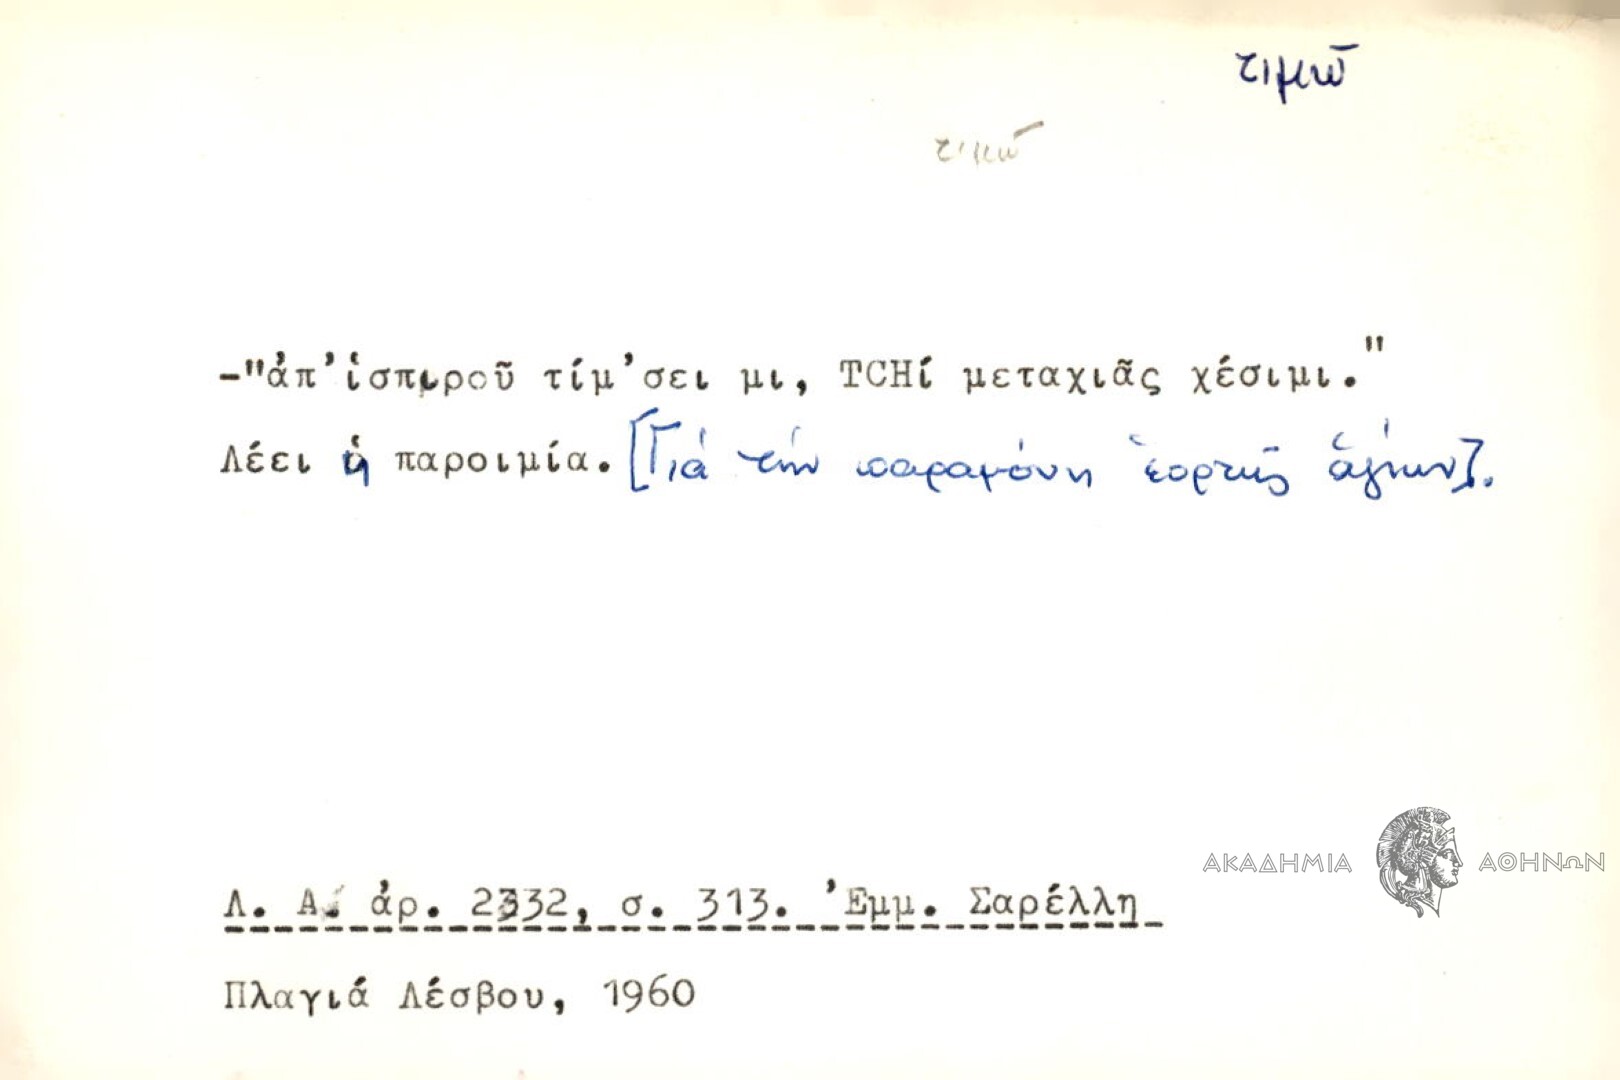 τιμῶ
τιμῶ
-"ἀπ'ἰσπιροῦ τίμ'σει μι, TCHί μεταχιᾶς χέσιμι."
Λέει ἡ παροιμία. [Γιά τήν παραμόνη ἑορτῆς ἁγίων].
Λ. Α. ἀρ. 2332, σ. 313. Ἐμμ. Σαρέλλη
Πλαγιά Λέσβου, 1960
ΑΚΑΔΗΜΙΑ ΑΘΗΝΩΝ